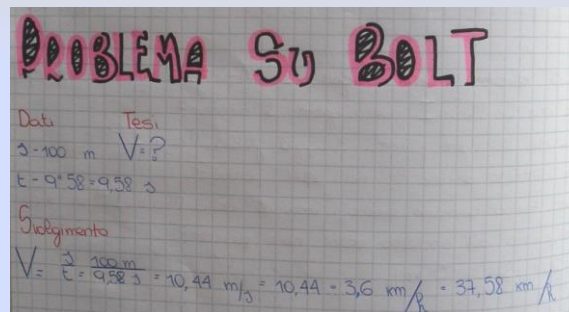 PROBLEMA SU BOLT
Dati Tesi
s = 100 m V = ?
t = 9"58 = 9,58 s
Svolgimento
V = s/t = 100 m/9,58 s = 10,44 m/s = 10,44 · 3,6 km/h = 37,58 km/h